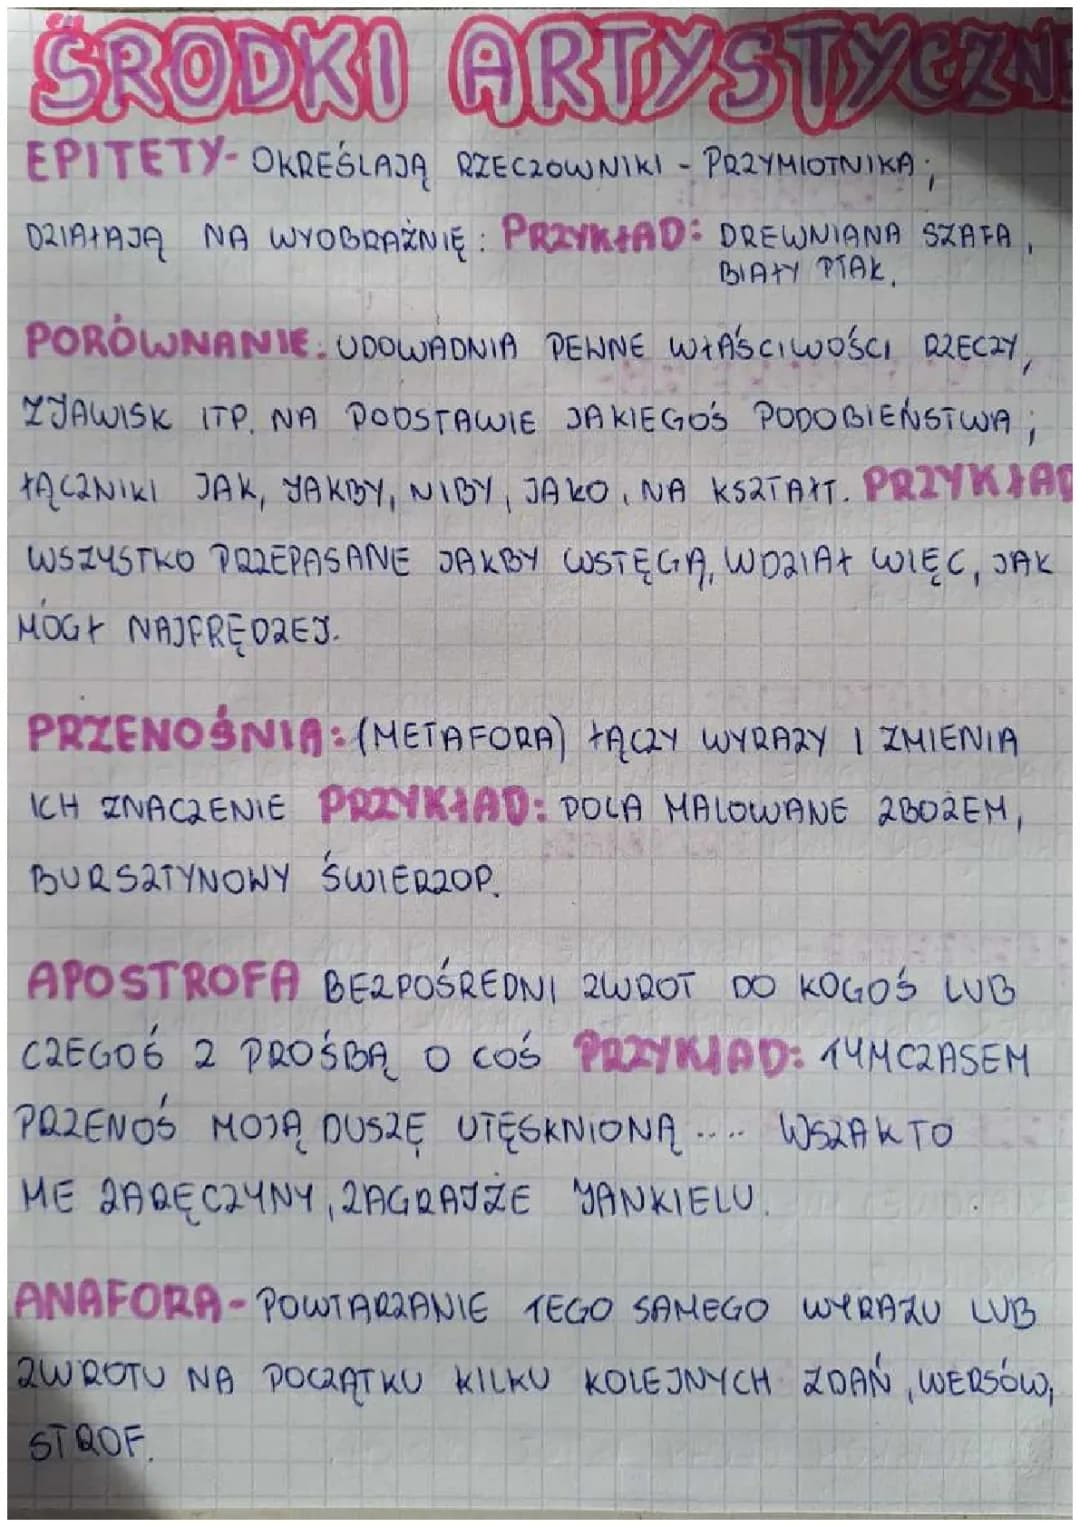 ŚRODKI ARTYSTYCZNE
EPITETY- OKREŚLAJĄ RZECZOWNIKI - PRZYMIOTNIKA;
DZIAŁAJĄ NA WYOBRAŹNIĘ: PRZYKŁAD: DREWNIANA SZAFA,
BIAŁY PTAK.
PORÓWNANIE: UDOWADNIA PEWNE WŁAŚCIWOŚCI RZECZY,
ZJAWISK ITP. NA PODSTAWIE JAKIEGOŚ PODOBIEŃSTWA;
ŁĄCZNIKI JAK, JAKBY, NIBY, JAKO, NA KSZTAŁT. PRZYKŁAD
WSZYSTKO PRZEPASANE JAKBY WSTĘGĄ, WDZIAŁ WIĘC, JAK
MÓGŁ NAJPRĘDZEJ.
PRZENOŚNIA: (METAFORA) ŁĄCZY WYRAZY I ZMIENIA
ICH ZNACZENIE PRZYKŁAD: POLA MALOWANE ZBOŻEM,
BURSZTYNOWY ŚWIERZOP.
APOSTROFA BEZPOŚREDNI ZWROT DO KOGOŚ LUB
CZEGOŚ Z PROŚBĄ O COŚ PRZYKŁAD: TYMCZASEM
PRZENOŚ MOJĄ DUSZĘ UTĘSKNIONĄ .... WSZAK TO
ME ZARĘCZYNY, ZAGRAJŻE JANKIELU.
ANAFORA- POWTARZANIE TEGO SAMEGO WYRAZU LUB
ZWROTU NA POCZĄTKU KILKU KOLEJNYCH ZDAŃ, WERSÓW,
STROF.